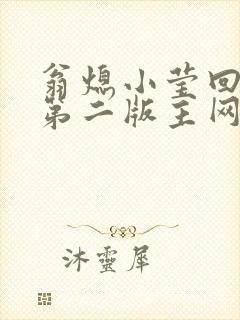 翁熄小莹回
第二版主网
沐靈犀